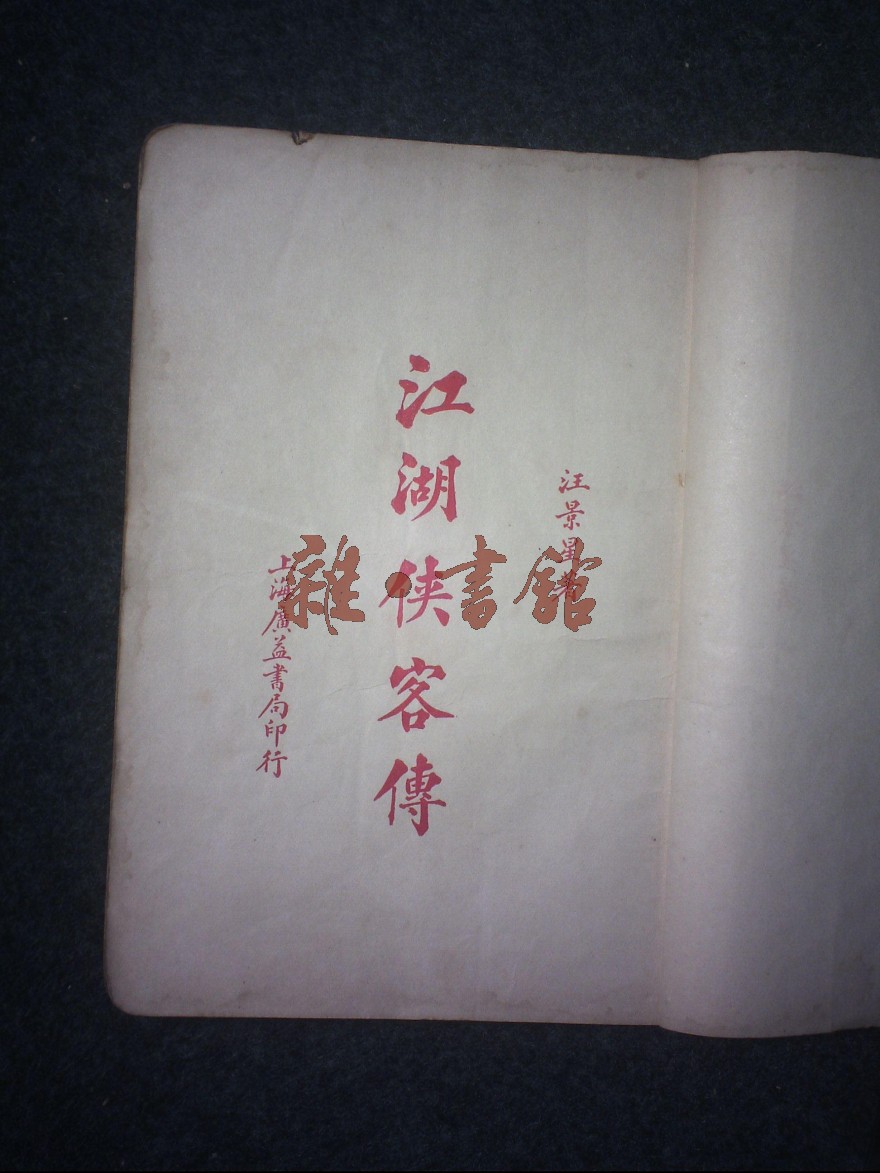 汪景星著
江湖侠客傳
上海廣益書局印行
雜·書館